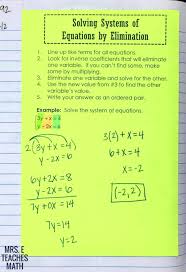 92
12
Solving Systems of
Equations by Elimination
1. Line up like terms for all equations.
2. Look for inverse coefficients that will eliminate
one variable. If you can't find some, make
some by multiplying.
3. Eliminate one variable and solve for the other.
4. Use the new value from #3 to find the other
variable's value.
5. Write your answer as an ordered pair.
Example: Solve the system of equations.
3y + x = 8
y - 2x = 6
2(3y + x = 4)
y - 2x = 6
6y + 2x = 8
y - 2x = 6
7y + 0x = 14
7y = 14
y = 2
3(2) + x = 4
6 + x = 4
x = -2
(-2, 2)
MRS. E
TEACHES
MATH